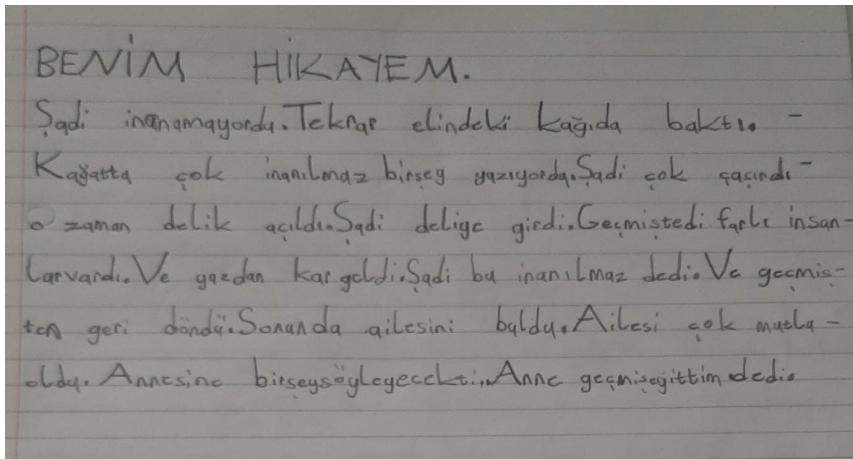 BENİM HİKAYEM.
Şadi inanamayordu.Tekrar elindeki kağıda baktı. -
Kağatta çok inanılmaz birşey yazıyordu.Şadi çok çaşırdı-
o zaman delik açıldı.Şadi deliğe girdi.Geçmiştedi farlı insan-
larvardı.Ve yazdan kar geldi.Şadi bu inanılmaz dedi.Ve geçmiş-
ten geri döndü.Sonunda ailesini buldu.Ailesi çok mutlu-
oldu. Annesine birşeysöyleyecekti.Anne geçmişeğittim dedi.